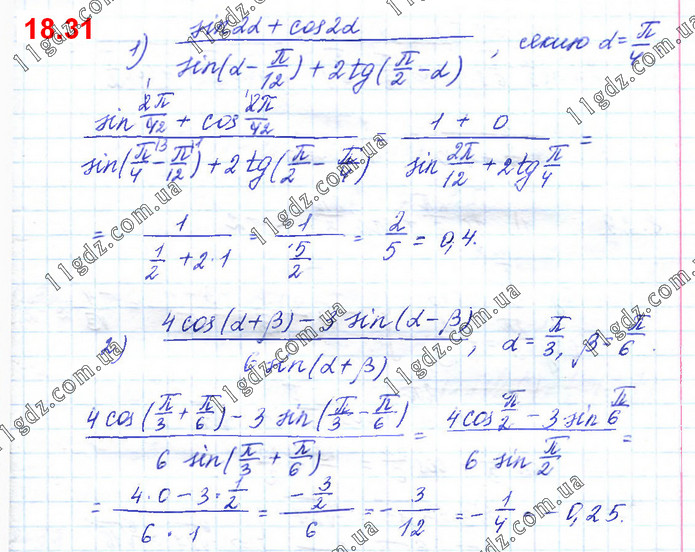 18.31
1) (sin2α + cos2α) / (sin(α − π/12) + 2tg(π/2 − α)), якщо α = π/4
(sin 2π/4 + cos 2π/4) / (sin(π/4 − π/12) + 2tg(π/2 − π/4)) = (1 + 0) / (sin 2π/12 + 2tg π/4) =
= 1 / (1/2 + 2·1) = 1 / (5/2) = 2/5 = 0,4.
2) (4cos(α+β) − 3 sin(α−β)) / (6 sin(α+β)), α = π/3, β = π/6.
(4cos(π/3 + π/6) − 3 sin(π/3 − π/6)) / (6 sin(π/3 + π/6)) = (4cos π/2 − 3·sin π/6) / (6 sin π/2) =
= (4·0 − 3·1/2) / (6·1) = (−3/2) / 6 = −3/12 = −1/4 = −0,25.
11gdz.com.ua